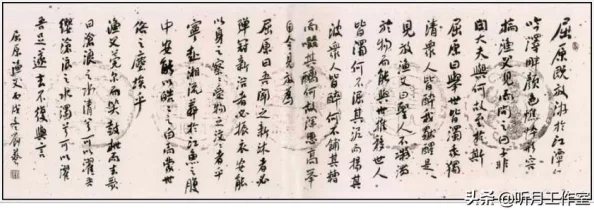 屈原既放游於江潭行
吟澤畔顏色憔悴形容
槁漁父見而問之曰子非
閭大夫與何故至於斯
屈原曰舉世皆濁我獨
清衆人皆醉我獨醒是
見放漁父曰聖人不凝滯
於物而能與世推移世人
皆濁何不淈其泥而揚其
波衆人皆醉何不餔其糟
而歠其醨何故深思高舉
自令見放為
屈原曰吾聞之新沐者必
彈冠新浴者必振衣安能
以身之察察受物之汶汶者乎
寧赴湘流葬於江魚之腹
中安能以皓皓之白而蒙世
俗之塵埃乎
漁父莞尔而笑鼓枻而去歌
曰滄浪之水清兮可以濯吾
纓滄浪之水濁兮可以濯
吾足遂去不復與言
屈原漁父
头条 @听月工作室